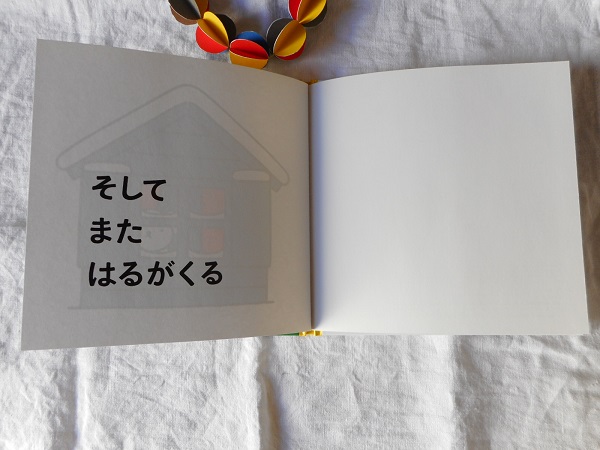 そして
また
はるがくる